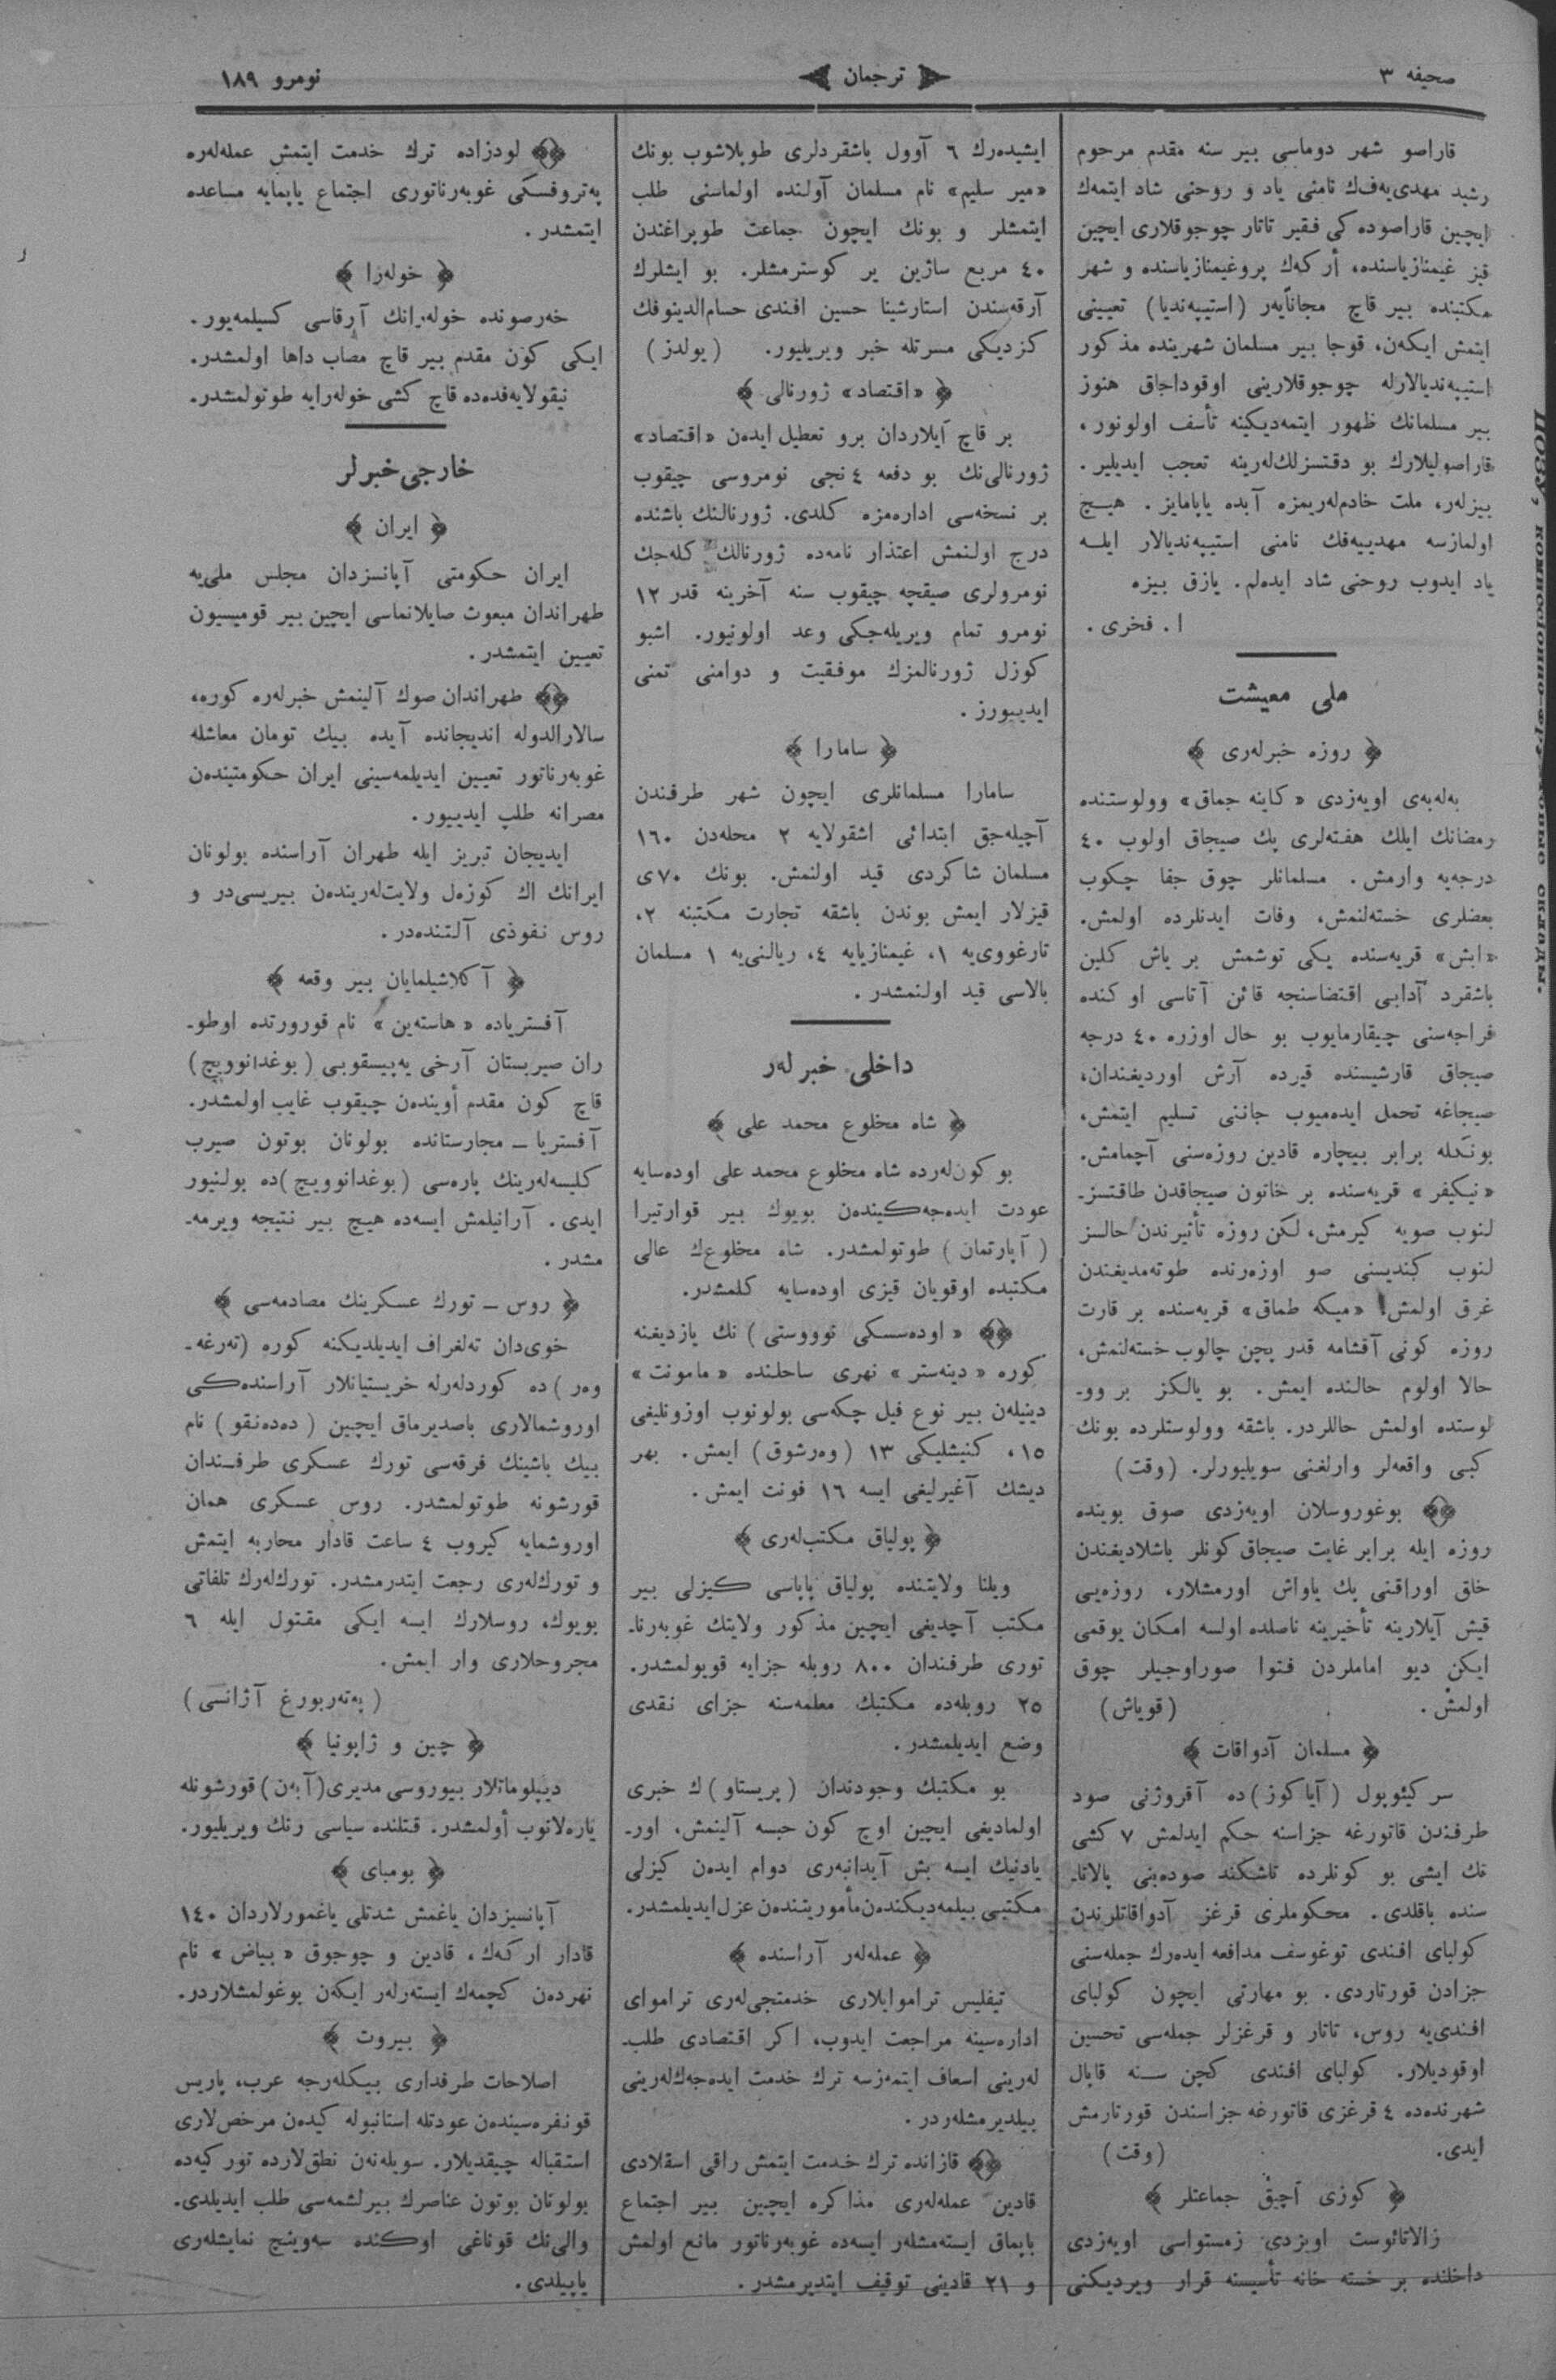 صحیفه ٣
ترجمان
نومرو ١٨٩
قاراصو شهر دوماسی بیر سنه مقدم مرحوم
رشید مهدی‌یه‌ف‌ك نامنی یاد و روحنی شاد ایتمه‌ك
ایچین قاراصوده كی فقیر تاتار چوجوقلاری ایچین
قیز غیمنازیاسنده، أركه‌ك پروغیمنازیاسنده و شهر
مكتبنده بیر قاچ مجاناًیه‌ر (استیپه‌ندیا) تعیینی
ایتمش ایكه‌ن، قوجا بیر مسلمان شهرینده مذكور
استیپه‌ندیالارله چوجوقلارینی اوقوداجاق هنوز
بیر مسلمانك ظهور ایتمه‌دیكینه تأسف اولونور،
قاراصولیلارك بو دقتسزلك‌له‌رینه تعجب ایدیلیر.
بیزلەر، ملت خادم‌له‌ریمزه آبده یاپامایز. هیـچ
اولمازسه مهدییه‌فك نامنی استیپه‌ندیالار ایلـه
یاد ایدوب روحنی شاد ایده‌لم. یازق بیزه
ا. فخری.
ملی معیشت
﴿ روزه خبرله‌ری ﴾
به‌له‌به‌ی اویه‌زدی «كاینه جماق» وولوستنده
رمضانك ایلك هفته‌لری پك صیجاق اولوب ٤٠
درجه‌یه وارمش. مسلمانلر چوق جفا چكوب
بعضلری خسته‌لنمش، وفات ایدنلرده اولمش.
«ابش» قریه‌سنده یكی توشمش بر یاش كلین
باشقرد آدابی اقتضاسنجه قائن آتاسی اوكنده
فراجه‌سنی چیقارمایوب بو حال اوزره ٤٠ درجه
صیجاق قارشیسنده قیرده آرش اوردیغندان،
صیجاغه تحمل ایده‌میوب جاننی تسلیم ایتمش،
بونكله برابر بیچاره قادین روزه‌سنی آچمامش.
«نیكیفر» قریه‌سنده بر خاتون صیجاقدن طاقتسزـ
لنوب صویه كیرمش، لكن روزه تأثیرندن حالسز
لنوب كندیسنی صو اوزه‌رنده طوته‌مدیغندن
غرق اولمش! «میكه طماق» قریه‌سنده بر قارت
روزه كونی آقشامه قدر پچن چالوب خسته‌لنمش،
حالا اولوم حالنده ایمش. بو یالكز بر ووـ
لوستده اولمش حاللردر. باشقه وولوستلرده بونك
كبی واقعه‌لر وارلغنی سویلیورلر. (وقت)
بوغوروسلان اویه‌زدی صوق بوینده
روزه ایله برابر غایت صیجاق كونلر باشلادیغندن
خلق اوراقنی پك یاواش اورمشلار، روزه‌یی
قیش آیلارینه تأخیرینه ناصلده اولسه امكان یوقمی
ایكن دیو اماملردن فتوا صوراوجیلر چوق
اولمش. (قویاش)
﴿ مسلمان آدواقات ﴾
سركیئوپول (آیاكوز)ده آقروژنی صود
طرفندن قاتورغه جزاسنه حكم ایدلمش ٧ كشی
نك ایشی بو كونلرده تاشكند صوده‌بنی پالاتاـ
سنده باقلدی. محكوملری قرغز آدواقاتلرندن
كولبای افندی توغوسف مدافعه ایده‌رك جمله‌سنی
جزادن قورتاردی. بو مهارتی ایچون كولبای
افندی‌یه روس، تاتار و قرغزلر جمله‌سی تحسین
اوقودیلار. كولبای افندی كچن سـنه قاپال
شهرنده‌ده ٤ قرغزی قاتورغه جزاسندن قورتارمش
ایدی. (وقت)
﴿ كوزی آچیق جماعتلر ﴾
زالاتائوست اویزدی زمستواسی اویه‌زدی
داخلنده بر خسته خانه تأسیسنه قرار ویردیكنی
ایشیده‌رك ٦ آوول باشقردلری طوپلاشوب بونك
«میر سلیم» نام مسلمان آولنده اولماسنی طلب
ایتمشلر و بونك ایچون جماعت طوپراغندن
٤٠ مربع ساژین یر كوسترمشلر. بو ایشلرك
آرقه‌سندن استارشینا حسین افندی حسام‌الدینوفك
كزدیكی مسرتله خبر ویریلیور. (یولدز)
﴿ «اقتصاد» ژورنالی ﴾
بر قاچ آیلاردان برو تعطیل ایده‌ن «اقتصاد»
ژورنالی‌نك بو دفعه ٤نجی نومروسی چیقوب
بر نسخه‌سی اداره‌مزه كلدی. ژورنالنك باشنده
درج اولنمش اعتذار نامه‌ده ژورنالك كله‌جك
نومرولری صیقچه چیقوب سنه آخرینه قدر ١٢
نومرو تمام ویریله‌جكی وعد اولونیور. اشبو
كوزل ژورنالمزك موفقیت و دوامنی تمنی
ایدییورز.
﴿ سامارا ﴾
سامارا مسلمانلری ایچون شهر طرفندن
آچیله‌جق ابتدائی اشقولایه ٢ محله‌دن ١٦٠
مسلمان شاكردی قید اولنمش. بونك ٧٠ی
قیزلار ایمش بوندن باشقه تجارت مكتبنه ٢،
تارغووی‌یه ١، غیمنازیایه ٤، ریالنی‌یه ١ مسلمان
بالاسی قید اولنمشدر.
داخلی خبرلەر
﴿ شاه مخلوع محمد علی ﴾
بو كون‌له‌رده شاه مخلوع محمد علی اوده‌سایه
عودت ایده‌جه‌كیندەن بویوك بیر قوارتیرا
(آپارتمان) طوتولمشدر. شاه مخلوعك عالی
مكتبده اوقویان قیزی اوده‌سایه كلمشدر.
«اوده‌سسكی نووـوستی) نك یازدیغنه
كوره «دینه‌ستر» نهری ساحلنده «مامونت»
دینیله‌ن بیر نوع فیل چكه‌سی بولونوب اوزونلیغی
١٥، كنیشلیكی ١٣ (وه‌رشوق) ایمش. بهر
دیشك آغیرلیغی ایسه ١٦ فونت ایمش.
﴿ پولیاق مكتب‌له‌ری ﴾
ویلنا ولایتنده پولیاق پاپاسی كیزلی بیر
مكتب آچدیغی ایچین مذكور ولایتك غوبه‌رناـ
توری طرفندان ٨٠٠ روبله جزایه قویولمشدر.
٢٥ روبله‌ده مكتبك معلمه‌سنه جزای نقدی
وضع ایدیلمشدر.
بو مكتبك وجودندان (پریستاو)ك خبری
اولمادیغی ایچین اوچ كون حبسه آلینمش، اورـ
یادنیك ایسه بش آیدانبه‌ری دوام ایده‌ن كیزلی
مكتبی بیلمه‌دیكنده‌ن مأموریتنده‌ن عزل ایدیلمشدر.
﴿ عمله‌له‌ر آراسنده ﴾
تیفلیس تراموایلاری خدمتجی‌له‌ری تراموای
اداره‌سینه مراجعت ایدوب، اكر اقتصادی طلبـ
له‌رینی اسعاف ایتمه‌زسه ترك خدمت ایده‌جه‌ك‌له‌رینی
بیلدیرمشله‌ردر.
قازانده ترك خدمت ایتمش راقی اسقلادی
قادین عمله‌له‌ری مذاكره ایچین بیر اجتماع
یاپماق ایسته‌مشله‌ر ایسه‌ده غوبه‌رناتور مانع اولمش
و ٢١ قادینی توقیف ایتدیرمشدر.
لودزاده ترك خدمت ایتمش عمله‌له‌ره
په‌تروفسكی غوبه‌رناتوری اجتماع یاپمایه مساعده
ایتمشدر.
﴿ خوله‌را ﴾
خه‌رصونده خوله‌رانك آرقاسی كسیلمه‌یور.
ایكی كون مقدم بیر قاچ مصاب داها اولمشدر.
نیقولایه‌فده‌ده قاچ كشی خوله‌رایه طوتولمشدر.
خارجی خبرلر
﴿ ایران ﴾
ایران حكومتی آپانسزدان مجلس ملی‌یه
طهراندان مبعوث صایلانماسی ایچین بیر قومیسیون
تعیین ایتمشدر.
طهراندان صوك آلینمش خبرله‌ره كوره،
سالارالدوله اندیجانده آیده بیك تومان معاشله
غوبه‌رناتور تعیین ایدیلمه‌سینی ایران حكومتیندەن
مصرانه طلب ایدییور.
ایدیجان تبریز ایله طهران آراسنده بولونان
ایرانك اك كوزه‌ل ولایت‌له‌رینده‌ن بیریسی‌در و
روس نفوذی آلتنده‌در.
﴿ آكلاشیلمایان بیر وقعه ﴾
آفستریاده «هاسته‌ین» نام قورورتده اوطوـ
ران صیربستان آرخی یه‌پیسقوپی (بوغدانوویچ)
قاچ كون مقدم أوینده‌ن چیقوب غایب اولمشدر.
آفستریا ــ مجارستانده بولونان بوتون صیرب
كلیسه‌له‌رینك پاره‌سی (بوغدانوویچ)ده بولنیور
ایدی. آرانیلمش ایسه‌ده هیچ بیر نتیجه ویرمه‌ـ
مشدر.
﴿ روس ــ تورك عسكرینك مصادمه‌سی ﴾
خوی‌دان ته‌لغراف ایدیلدیكنه كوره (ته‌رغه‌ـ
وه‌ر)ده كوردله‌رله خریستیانلار آراسنده‌كی
اوروشمالاری باصدیرماق ایچین (ده‌ده‌نقو) نام
بیك باشینك فرقه‌سی تورك عسكری طرفـندان
قورشونه طوتولمشدر. روس عسكری همان
اوروشمایه كیروب ٤ ساعت قادار محاربه ایتمش
و تورك‌له‌ری رجعت ایتدرمشدر. تورك‌له‌رك تلفاتی
بویوك، روسلارك ایسه ایكی مقتول ایله ٦
مجروحلاری وار ایمش.
(په‌ته‌ربورغ آژانسی)
﴿ چین و ژاپونیا ﴾
دیپلوماتلار بیوروسی مدیری (آبه‌ن) قورشونله
یاره‌لانوب أولمشدر. قتلنده سیاسی رنك ویریلیور.
﴿ بومبای ﴾
آپانسیزدان یاغمش شدتلی یاغمورلاردان ١٤٠
قادار اركه‌ك، قادین و چوجوق «بیاض» نام
نهردەن كچمه‌ك ایسته‌رله‌ر ایكه‌ن بوغولمشلاردر.
﴿ بیروت ﴾
اصلاحات طرفداری بیكله‌رجه عرب، پاریس
قونفره‌سینده‌ن عودتله استانبوله كیده‌ن مرخص‌لاری
استقباله چیقدیلار. سویله‌نه‌ن نطق‌لارده توركیه‌ده
بولونان بوتون عناصرك بیرلشمه‌سی طلب ایدیلدی.
والی‌نك قوناغی اوكنده سه‌وینج نمایشله‌ری
یاپیلدی.